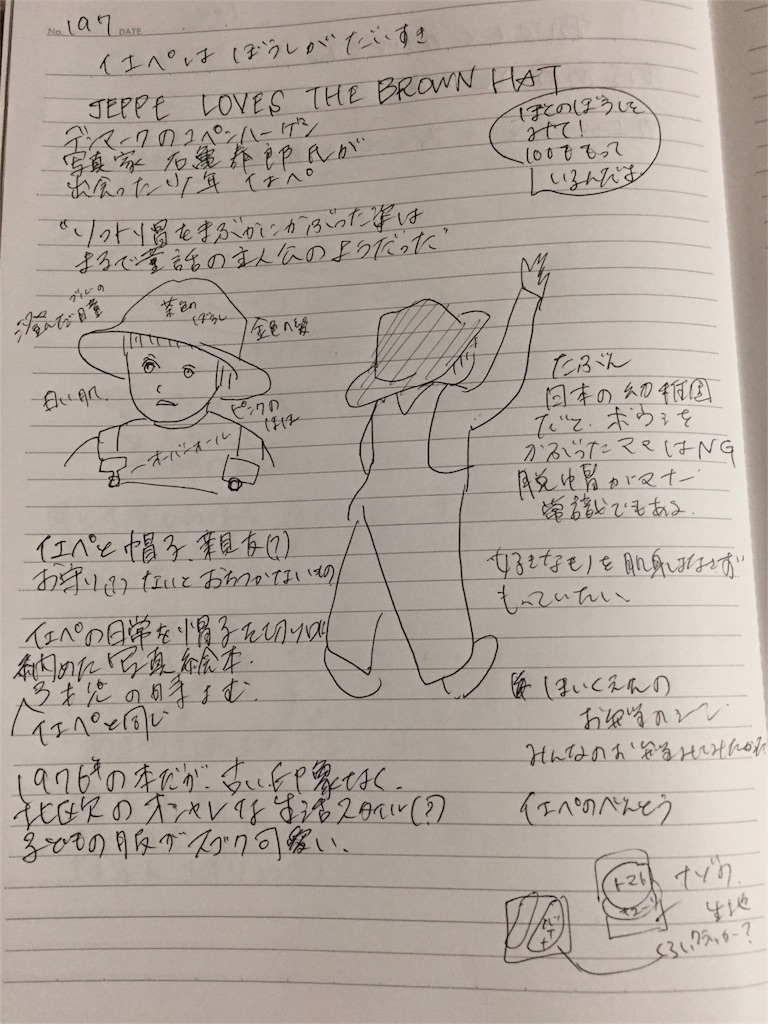 No. 197 DATE
イエペは ぼうしがだいすき
JEPPE LOVES THE BROWN HAT
デンマークのコペンハーゲン
写真家 石亀泰郎氏が
出会った少年 イエペ
ぼくのぼうしを
みて!
100ももって
いるんだよ
"ソフト帽をまぶかにかぶった姿は
まるで童話の主人公のようだった"
ブルーの
澄んだ目
茶色の
ぼうし
金色の髪
白い肌
ピンクの
ほほ
オーバーオール
たぶん
日本の幼稚園
だと、ボウシを
かぶったママはNG
脱帽がマナー
常識でもある。
イエペと帽子、親友(?)
お守り(?) ないとおちつかないもの
好きなモノを肌身はなさず
もっていたい、
イエペの日常を帽子を切り口に
納めた写真絵本.
3才児の日手よむ.
イエペと同じ
ほいくえんの
お弁当のシーン
みんなのお弁当みてみたかった
1976年の本だが、古い印象はなく、
北欧のオシャレな生活スタイル(?)
子どもの服がスゴク可愛い、
イエペのべんとう
トマト
ナゾの
生地
クラッカー?